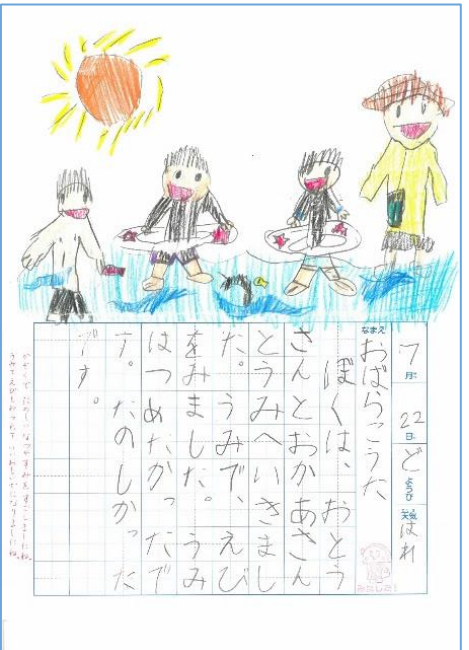 7月22日どようび天気はれ
なまえ おばらこうた
ぼくは、おとう
さんとおかあさん
とうみへいきまし
た。うみで、えび
をみました。うみ
はつめたかったで
す。たのしかった
です。
みました!
かぞくで たのしいなつやすみをすごしましたね。